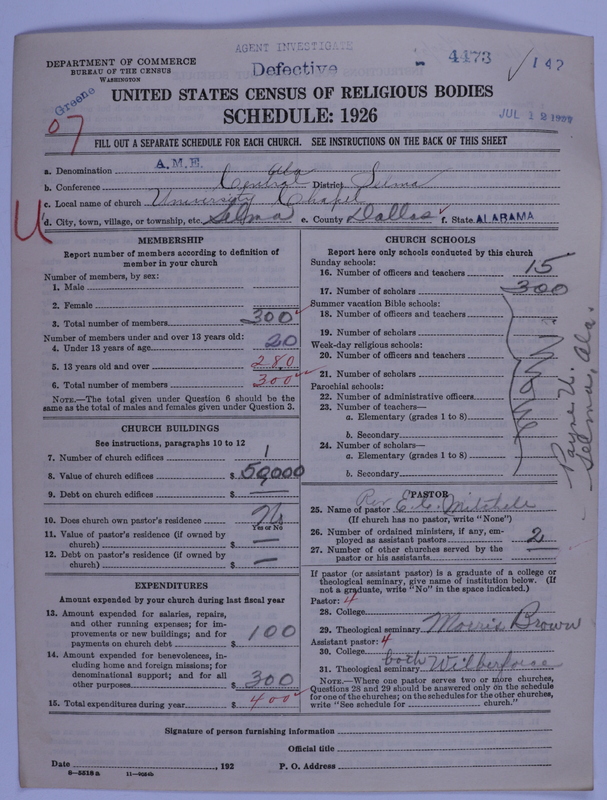 AGENT INVESTIGATE
DEPARTMENT OF COMMERCE
BUREAU OF THE CENSUS
WASHINGTON
Defective - 4473 √ 142
Greene
UNITED STATES CENSUS OF RELIGIOUS BODIES
SCHEDULE: 1926
JUL 12 1928
07
FILL OUT A SEPARATE SCHEDULE FOR EACH CHURCH. SEE INSTRUCTIONS ON THE BACK OF THIS SHEET
a. Denomination A.M.E.
b. Conference Central Ala District Selma
c. Local name of church University Chapel
d. City, town, village, or township, etc. Selma e. County Dallas f. State ALABAMA
MEMBERSHIP
Report number of members according to definition of
member in your church
Number of members, by sex:
1. Male
2. Female
3. Total number of members 300
Number of members under and over 13 years old:
4. Under 13 years of age 20
5. 13 years old and over 280
6. Total number of members 300
NOTE.—The total given under Question 6 should be the
same as the total of males and females given under Question 3.
CHURCH BUILDINGS
See instructions, paragraphs 10 to 12
7. Number of church edifices 1
8. Value of church edifices $ 50,000
9. Debt on church edifices $ —
10. Does church own pastor's residence No
Yes or No
11. Value of pastor's residence (if owned by
church) $ —
12. Debt on pastor's residence (if owned by
church) $ —
EXPENDITURES
Amount expended by your church during last fiscal year
13. Amount expended for salaries, repairs,
and other running expenses; for im-
provements or new buildings; and for
payments on church debt $ 100
14. Amount expended for benevolences, in-
cluding home and foreign missions; for
denominational support; and for all
other purposes $ 300
15. Total expenditures during year $ 400
CHURCH SCHOOLS
Report here only schools conducted by this church
Sunday schools:
16. Number of officers and teachers 15
17. Number of scholars 300
Summer vacation Bible schools:
18. Number of officers and teachers
19. Number of scholars
Week-day religious schools:
20. Number of officers and teachers
21. Number of scholars
Parochial schools:
22. Number of administrative officers
23. Number of teachers—
a. Elementary (grades 1 to 8)
b. Secondary
24. Number of scholars—
a. Elementary (grades 1 to 8)
b. Secondary
None
Payne U.
Selma, Ala.
PASTOR
25. Name of pastor Rev E. C. Mitchell
(If church has no pastor, write "None")
26. Number of ordained ministers, if any, em-
ployed as assistant pastors 2
27. Number of other churches served by the
pastor —
If pastor (or assistant pastor) is a graduate of a college or
theological seminary, give name of institution below. (If
not a graduate, write "No" in the space indicated.)
Pastor: 4
28. College
29. Theological seminary Morris Brown
Assistant pastor: 4
30. College
31. Theological seminary both Wilberforce
NOTE.—Where one pastor serves two or more churches,
Questions 28 and 29 should be answered only on the schedule
for one of the churches; on the schedules for the other churches,
write "See schedule for church."
Signature of person furnishing information
Official title
Date , 192 P. O. Address
8—5518a 11—9024b